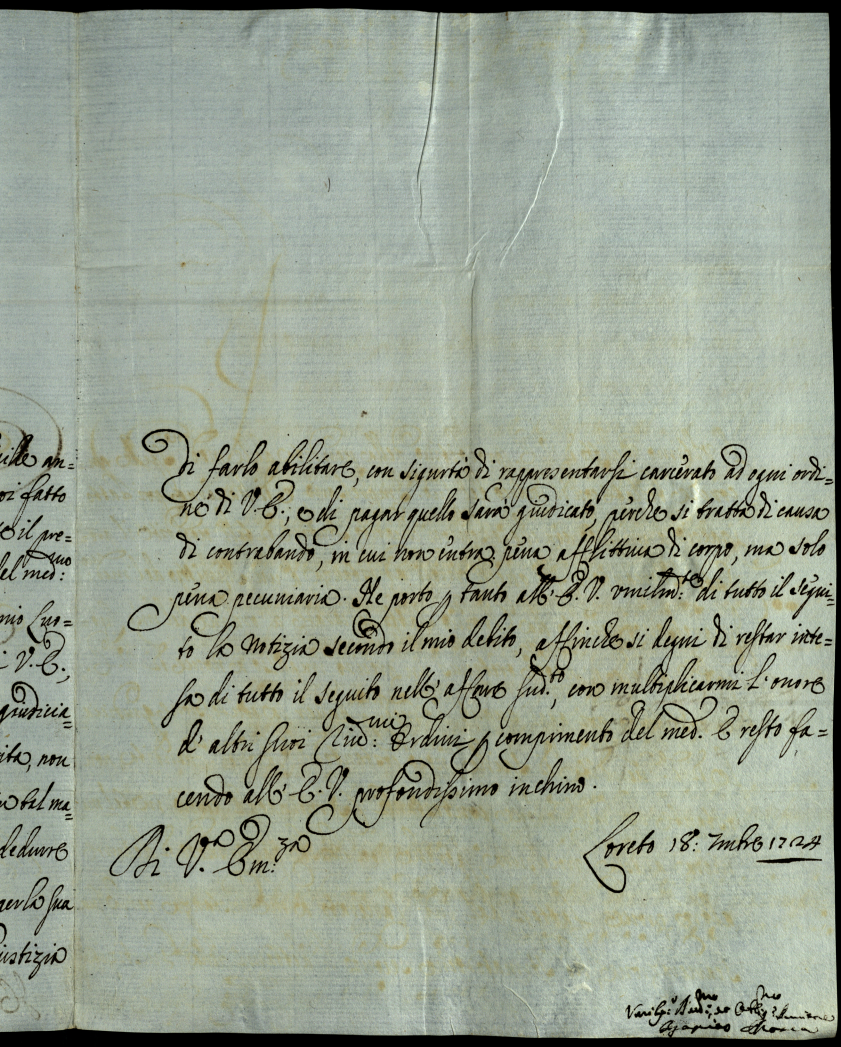 uille an=
oi fatto
e il pre=
del med:mo
mio Luo=
i V. E.,
giudicia=
ita, non
tal ma=
dedurre
per la sua
iustizia
di farlo abilitare, con sigurtà di rappresentarsi carcerato ad ogni ordi=
ne di V. E., e di pagar quello sarà giudicato, perche si tratta di causa
di contrabando, in cui non entra pena afflittiva di corpo, ma solo
pena pecuniaria. Ne porto p tanto all' E. V. vmilm:te di tutto il segui=
to la Notizia secondo il mio debito, affinche si degni di restar inte=
sa di tutto il seguito nell' affare sud:to, con multiplicarmi l'onore
d' altri suoi Riv:mi Ordini p compimento del med. E resto fa=
cendo all' E. V. profondissimo inchino.
Di V.a Em:za
Loreto 18: 7mbre 1724